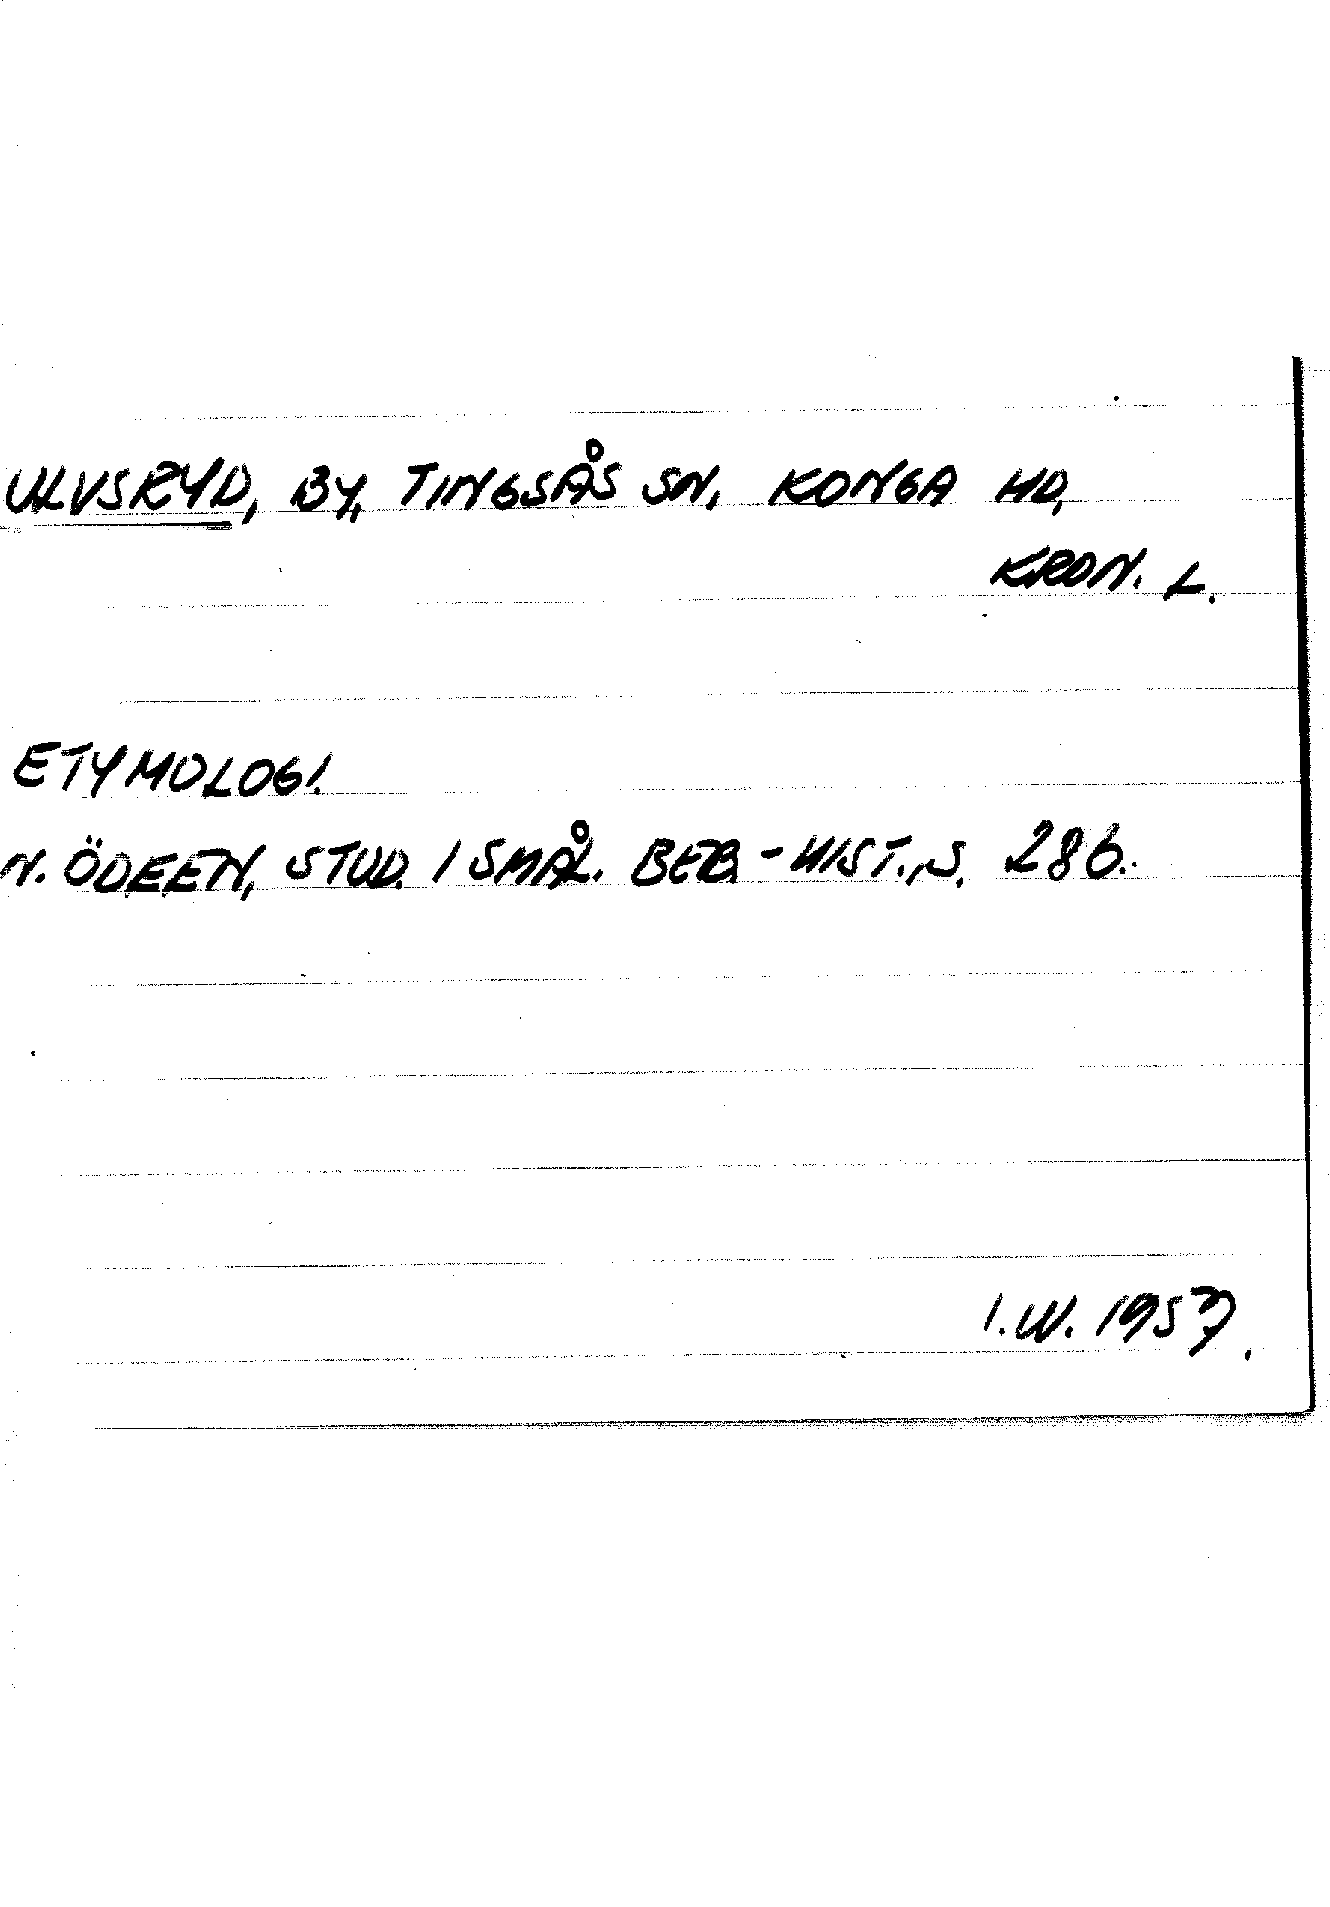 ULVSRYD, BY, TINGSÅS SN, KONGA HD,
KRON. L.
ETYMOLOGI.
N. ÖDEEN, STUD. I SMÅL. BEB.-HIST., S. 286.
I.W. 1957.